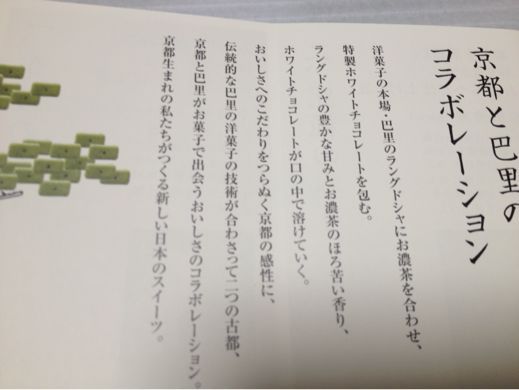 京都と巴里の
コラボレーション
洋菓子の本場・巴里のラングドシャにお濃茶を合わせ、
特製ホワイトチョコレートを包む。
ラングドシャの豊かな甘みとお濃茶のほろ苦い香り、
ホワイトチョコレートが口の中で溶けていく。
おいしさへのこだわりをつらぬく京都の感性に、
伝統的な巴里の洋菓子の技術が合わさって二つの古都、
京都と巴里がお菓子で出会うおいしさのコラボレーション。
京都生まれの私たちがつくる新しい日本のスイーツ。